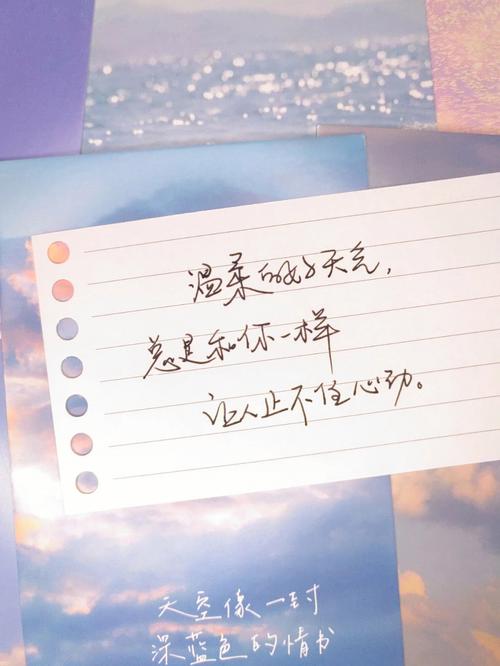 温柔的好天气，
总是和你一样
让人止不住心动。
天空像一封
深蓝色的情书